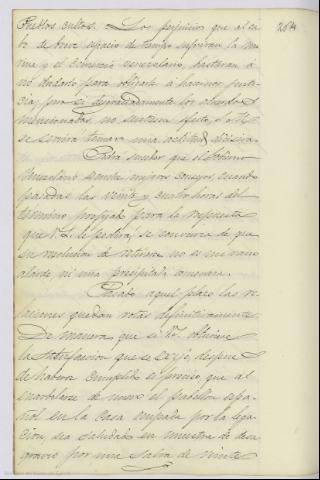 264
Pueblos cultos. Los perjuicios que al ca-
bo de breve espacio de tiempo sufriran la Ma-
rina y el Comercio venezolano, bastaran á
no dudarlo para obligarle á hacernos justi-
cia, pero si desgraciadamente los acuerdos
mencionados no surtiesen efecto, el
se serviria tomar una actitud decisiva.
Podrá suceder que el Gobierno
Venezolano escuche mejores consejos cuando
pasadas las veinte y cuatro horas del
término prefijado para la respuesta
que V.S. le pedirá, se convenza de que
su resolucion de retirarse no es un vano
alarde ni una precipitada amenaza.
Pasado aquel plazo las re-
laciones quedan rotas definitivamente.
De manera que si V.S. obtiene
la satisfaccion que se exije, despues
de haberse cumplido es preciso, que al
enarbolarse de nuevo el pabellon espa-
ñol en la Casa ocupada por la lega-
cion, sea saludado en muestra de desa-
gravio por una salva de veinte